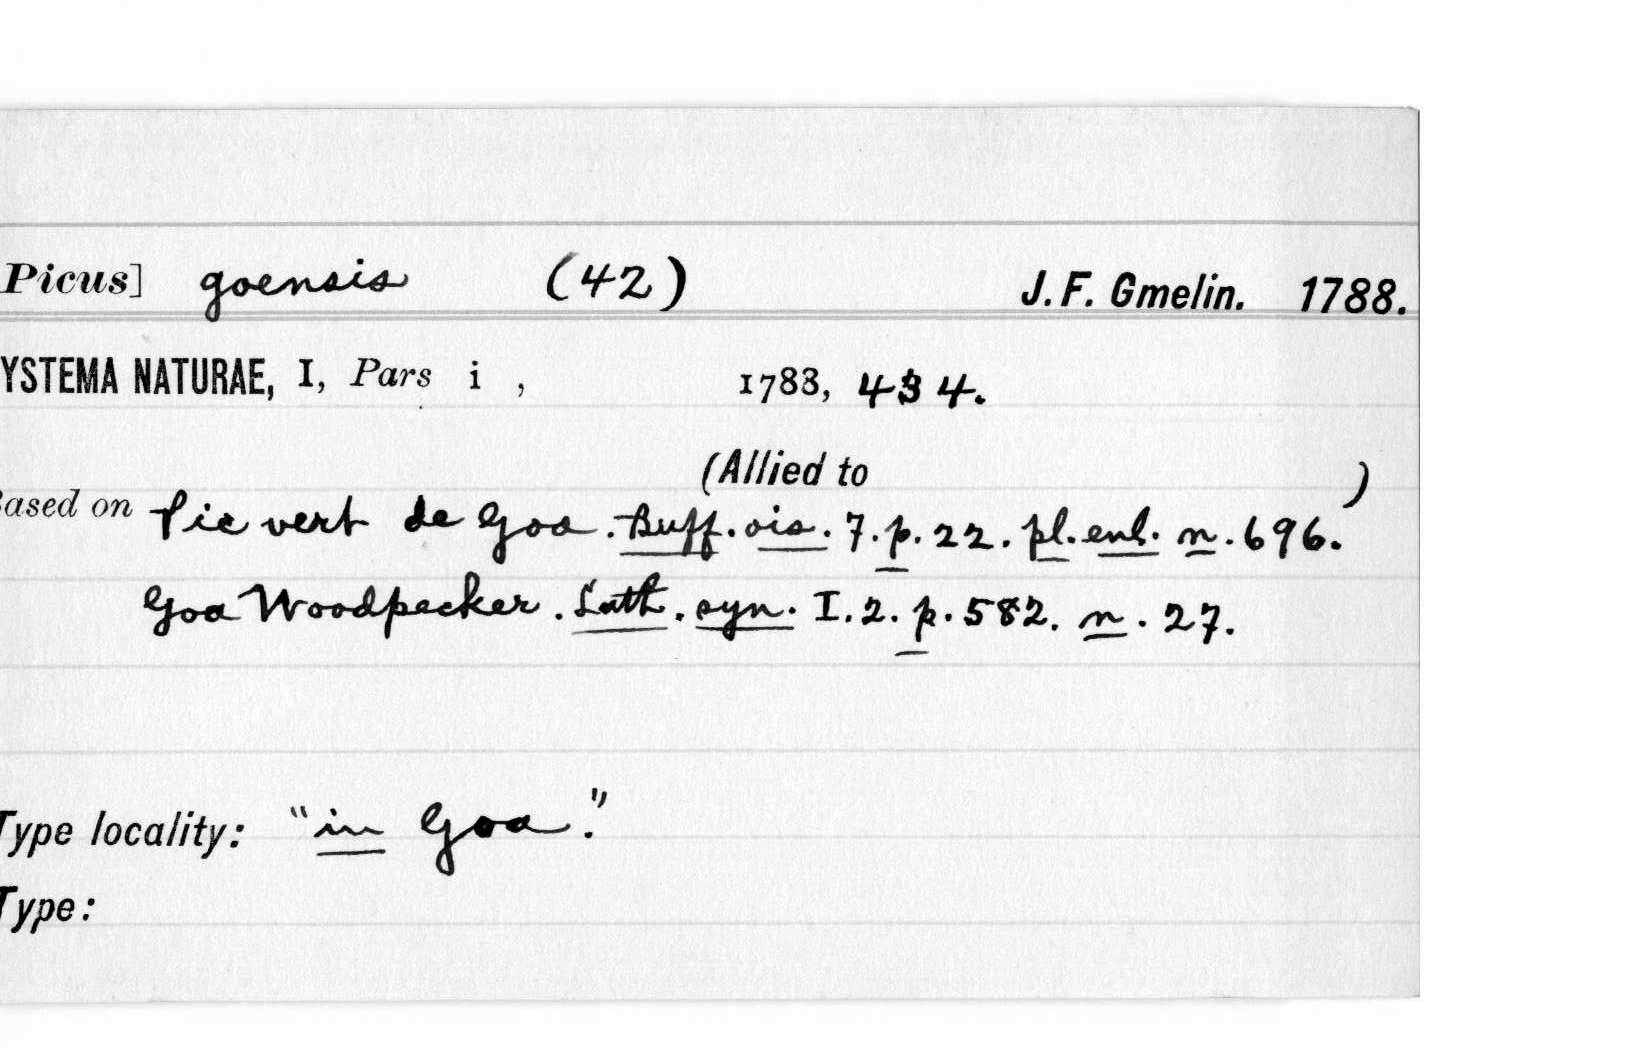 Picus] goensis (42) J. F. Gmelin. 1788.
YSTEMA NATURAE, I, Pars i , 1788, 434.
(Allied to )
ased on Pic vert de Goa . Buff. ois. 7. p. 22. pl. enl. n. 696.
Goa Woodpecker . Lath. syn. I. 2. p. 582. n. 27.
Type locality: "in Goa."
Type: